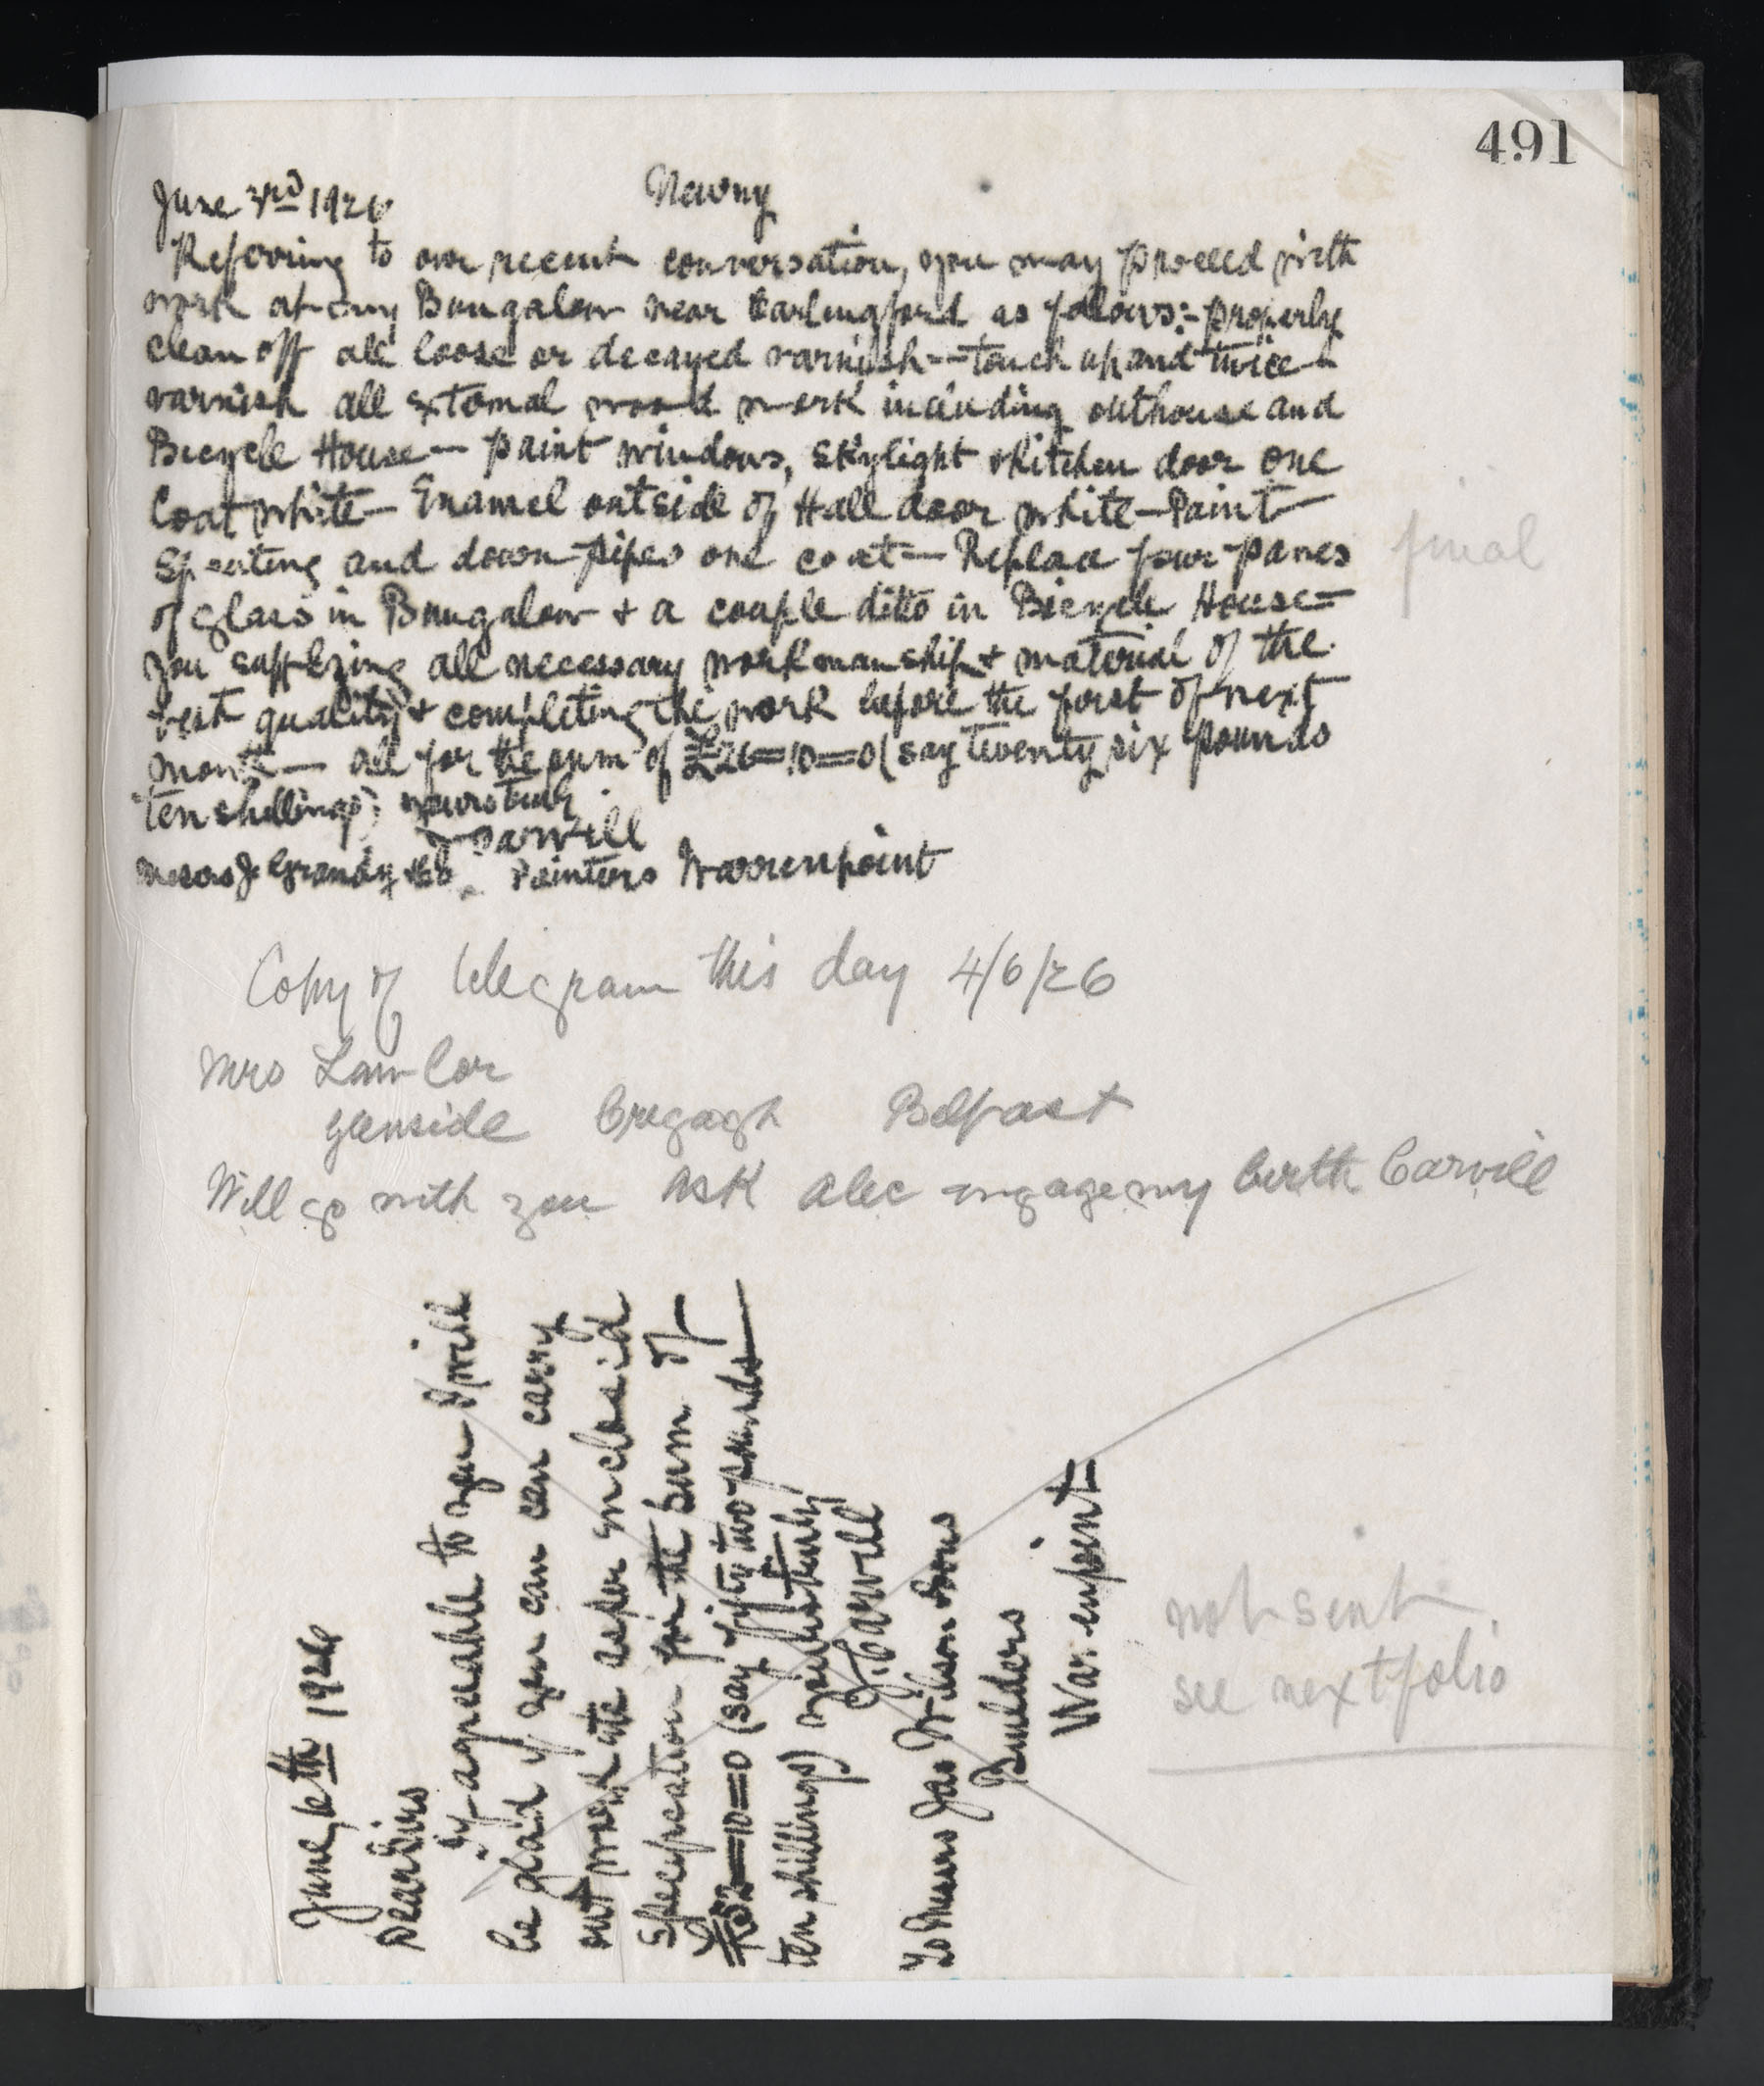 491
June 3rd 1926 Newry
Referring to our recent conversation, you may proceed with
work at my Bungalow near Carlingford as follows:- properly
clean off all loose or decayed varnish -- touch up and twice
varnish all external wood work including outhouse and
Bicycle House - paint windows, skylight & kitchen door one
Coat white - Enamel outside of Hall door white - Paint
Spouting and down-pipes one coat - Replace four panes
of glass in Bungalow + a couple ditto in Bicycle House =
you supplying all necessary workmanship + material of the
best quality + completing the work before the first of next
month - all for the sum of £26=10=0 (say twenty six pounds
ten shillings) yours truly
J Carvill
Messrs J. Grandy & Co. Painters Warrenpoint
final
Copy of telegram this day 4/6/26
Mrs Lawlor
Glenside Cregagh Belfast
Will go with you ask alec engage my berth Carvill
June 6th 1926
Dear Sirs
if agreeable to you I will
be glad if you can carry
out work as per enclosed
Specification for the sum of
£52=10=0 (say fifty two pounds
ten shillings) yours truly
J. Carvill
To Messrs Jas Wilson & Sons
Builders
Warrenpoint
not sent
see next folio